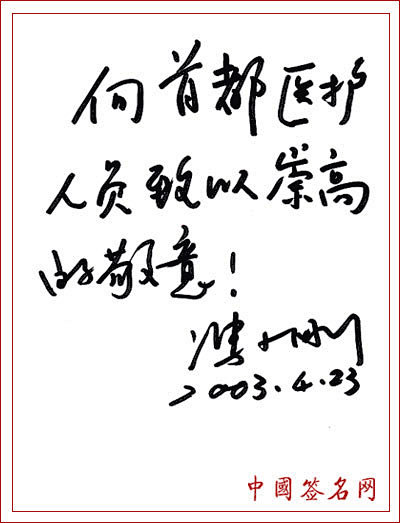 向首都医护
人员致以崇高
的敬意！
2003.4.23
中國签名网